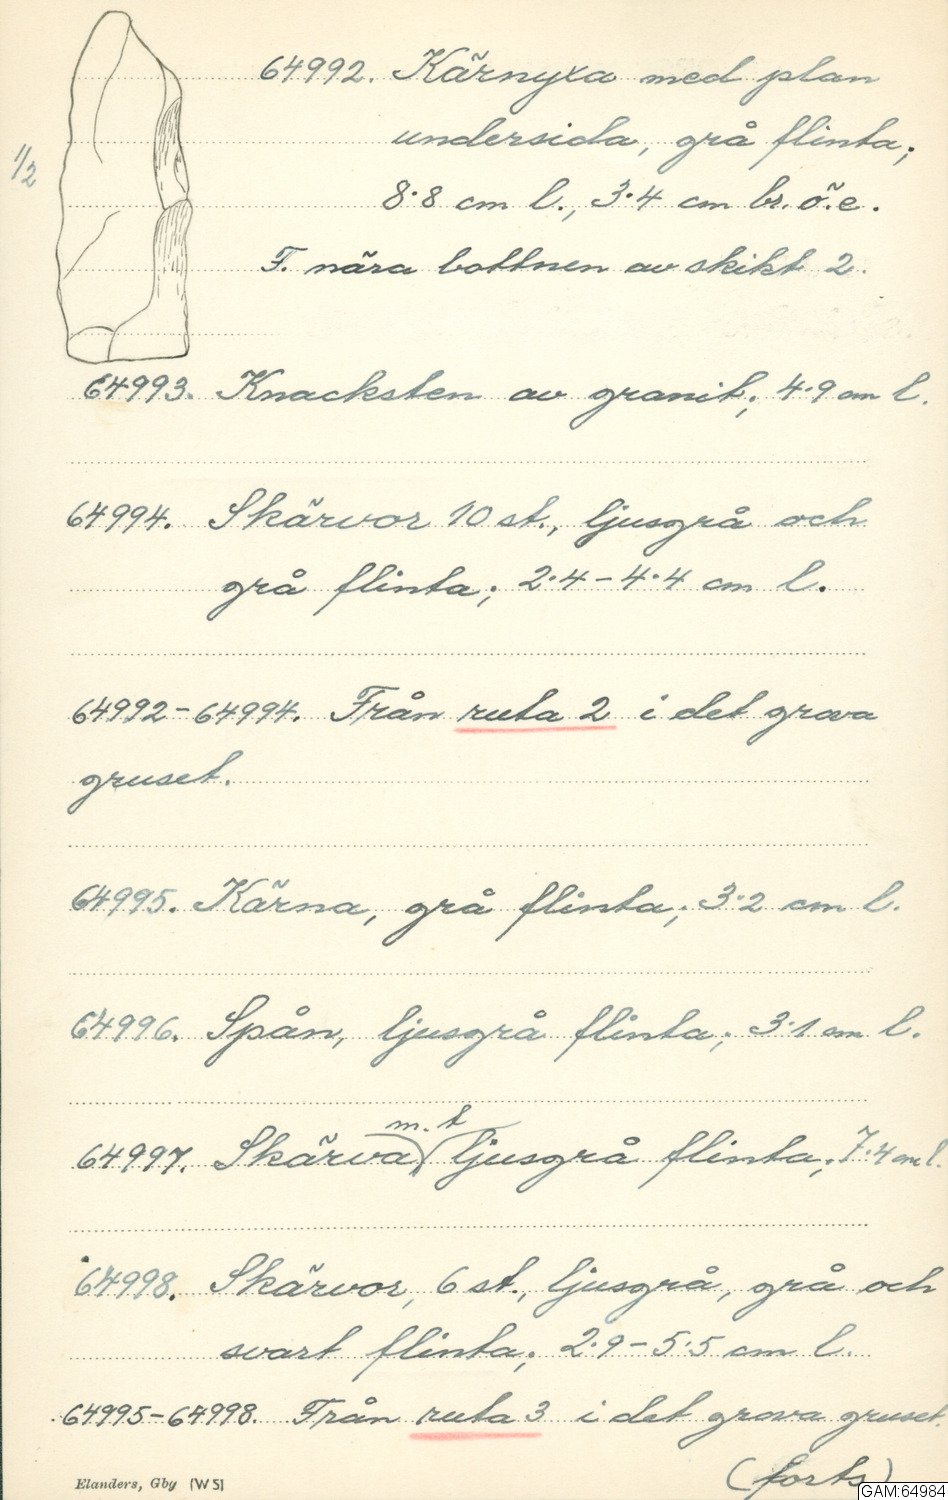 64992. Kärnyxa med plan
undersida, grå flinta;
1/2
8·8 cm l., 3·4 cm br. ö.e.
F. nära bottnen av skikt 2.
64993. Knacksten av granit; 4·9 cm l.
64994. Skärvor 10 st., ljusgrå och
grå flinta; 2·4–4·4 cm l.
64992–64994. Från ruta 2 i det grova
gruset.
64995. Kärna, grå flinta; 3·2 cm l.
64996. Spån, ljusgrå flinta; 3·1 cm l.
m. t
64997. Skärva ljusgrå flinta; 7·4 cm l.
64998. Skärvor, 6 st., ljusgrå, grå och
svart flinta; 2·9–5·5 cm l.
64995–64998. Från ruta 3 i det grova gruset.
(forts)
Elanders, Gby (W5)
GAM:64984